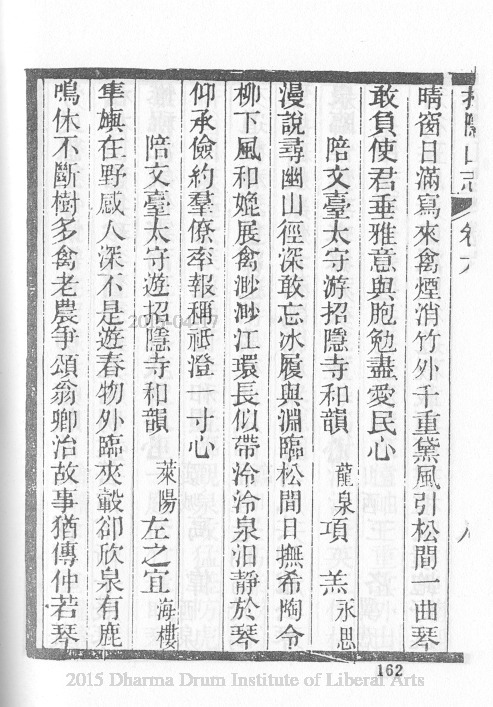 招隱山志 卷六
晴窗日滿寫來禽煙消竹外千重黛風引松間一曲琴
敢負使君垂雅意與胞勉盡愛民心
陪文臺太守游招隱寺和韻 龍泉 項羔 永思
漫說尋幽山徑深敢忘冰履與淵臨松間日撫希陶令
柳下風和媲展禽渺渺江環長似帶泠泠泉汩靜於琴
仰承儉約羣僚率報稱祗澄一寸心
陪文臺太守遊招隱寺和韻 萊陽 左之宜 海樓
隼旟在野感人深不是遊春物外臨夾轂卻欣泉有鹿
鳴休不斷樹多禽老農爭頌翁卿治故事猶傳仲若琴
162
2015 Dharma Drum Institute of Liberal Arts